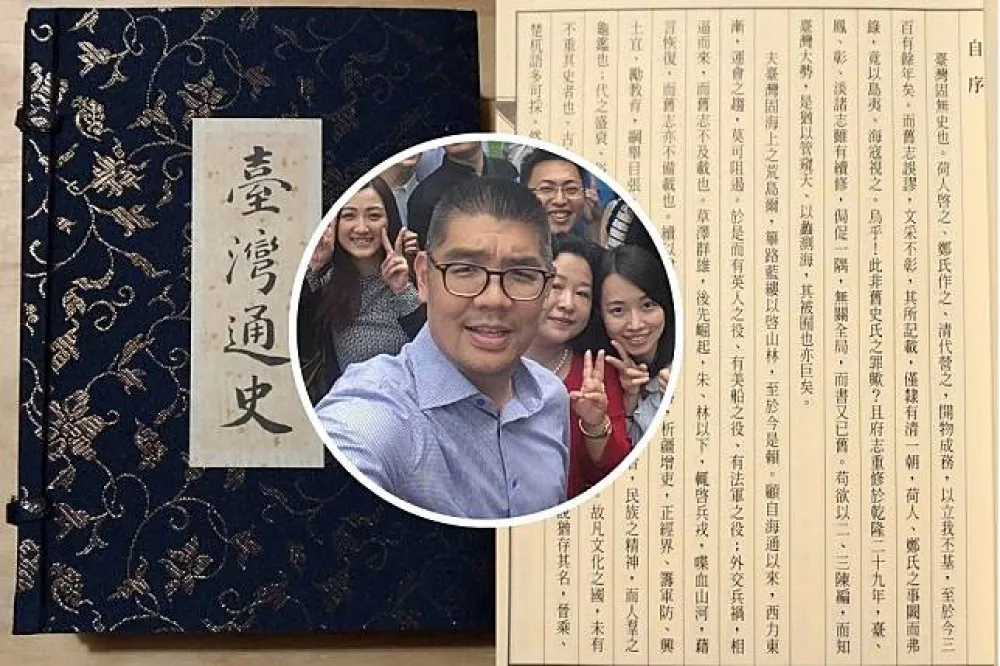 臺灣通史
自序
臺灣固無史也。荷人啓之、鄭氏作之、清代營之,開物成務,以立我丕基,至於今三
百有餘年矣。而舊志誤謬,文采不彰,其所記載,僅隸有清一朝,荷人、鄭氏之事闕而弗
錄,竟以島夷、海寇視之。烏乎!此非舊史氏之罪歟?且府志重修於乾隆二十九年,臺、
鳳、彰、淡諸志雖有續修,侷促一隅,無關全局,而書又已舊。苟欲以二、三陳編,而知
臺灣大勢,是猶以管窺天、以蠡測海,其被囿也亦巨矣。
夫臺灣固海上之荒島爾,篳路藍縷以啓山林,至於今是賴。顧自海通以來,西力東
漸,運會之趨,莫可阻遏。於是而有英人之役、有美船之役、有法軍之役;外交兵禍,相
逼而來,而舊志不及載也。草澤群雄,後先崛起,朱、林以下,輒啓兵戎,喋血山河,藉
言恢復,而舊志亦不備載也。續以 析疆增吏,正經界、籌軍防、興
土宜、勵教育,綱舉目張 民族之精神,而人羣之
龜鑑也;代之盛衰 故凡文化之國,未有
不重其史者也。古 猶存其名,晉乘、
楚杌語多可採。